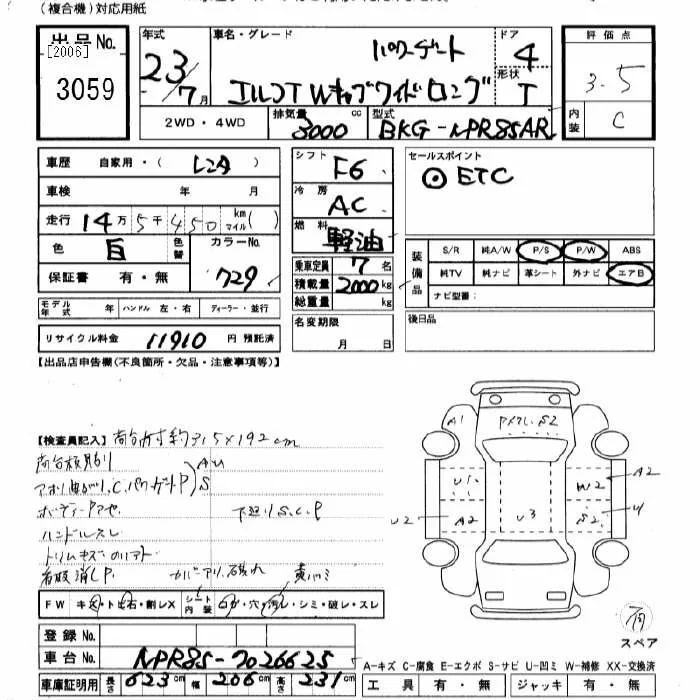 (複合機)対応用紙
出品No.
[2006]
3059
年式
23/7月
車名・グレード
パワーゲート
エルフT Wキャブワイドロング
ドア
4
形状
T
評価点
3.5
内装
C
2WD・4WD
排気量
3000cc
型式
BKG-NPR85AR
車歴 自家用・( レンタ )
車検 年 月
走行 14万5千450 km マイル( )
色 白 色替 カラーNo. 729
保証書 有・無
モデル年式 年 ハンドル 左・右 ディーラー・並行
リサイクル料金 11910 円 預託済
シフト F6
冷房 AC
燃料 軽油
乗車定員 7 名
積載量 2000 kg
総重量 kg
名変期限
月 日
セールスポイント
◎ ETC
装備品
S/R 純A/W P/S P/W ABS
純TV 純ナビ 革シート 外ナビ エアB
ナビ型番:
後日品
【出品店申告欄(不良箇所・欠品・注意事項等)】
【検査員記入】荷台内寸約315×192cm
ハンドルスレ
下廻りS.C.P
FW キズ・ト ビ石・割レX シート内装 コゲ・穴・汚レ・シミ・破レ・スレ
登録No.
車台No. NPR85-7026625
車庫証明用 長さ 623cm 幅 206cm 高さ 231cm
A1
S2
U1
W2
A2
U2
A2
U3
S2
スペア
A-キズ C-腐食 E-エクボ S-サビ U-凹ミ W-補修 XX-交換済
工具 有・無 ジャッキ 有・無